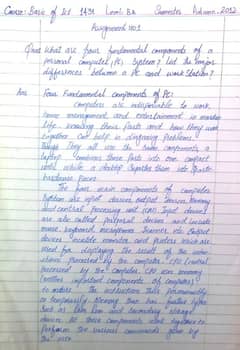 Course: Basic of Ict 1431 Level: Ba Semester Autumn-2012
Assignment No:1
Q no:1 what are four fundamental components of a
personal computer (Pc) System? List the major
differences between a Pc and work station?
Ans: Four Fundamental components of PC:
computers are indispensible to work
home management and entertainment in modern
life. knowing their parts and how they work
together can help in diagnosing problems
though They all use the same components a
laptop combines these parts into one compact
unit while a desktop separates them into
hardware pieces.
The four main components of computer
system are input devices output devices memory
and central processing unit (CPU). Input devices
are also called peripheral devices and include
mouse keyboard microphone scanner etc. Output
devices include monitor and printers which are
used for displaying the result of the
processed by the computer. CPU (central
processed by the computer. CPU
another important components of computer
to store the instructions permanently
or temporarily. Memory then has further types
such as Ram Rom and secondary storage
devices. All these components work together to
perform the various commands given by
the user.